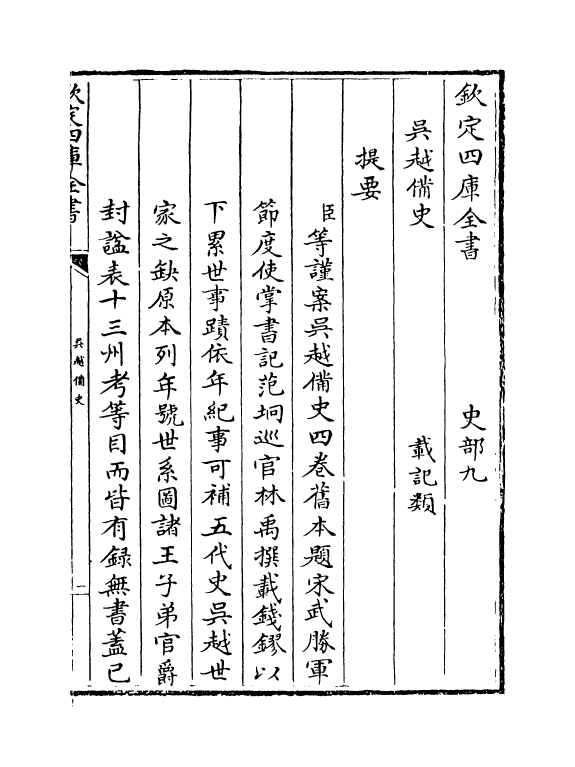 欽定四庫全書　史部九
吳越備史　載記類
提要
臣等謹案吳越備史四卷舊本題宋武勝軍
節度使掌書記范坰巡官林禹撰載錢鏐以
下累世事蹟依年紀事可補五代史吳越世
家之缺原本列年號世系圖諸王子弟官爵
封諡表十三州考等目而皆有録無書蓋已
欽定四庫全書
吳越備史
一